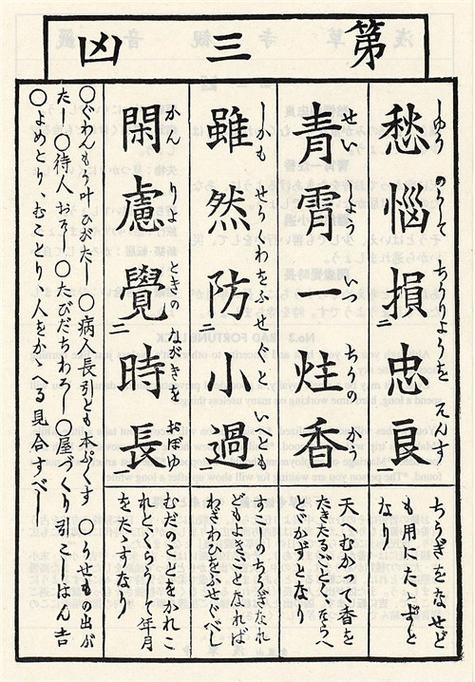 第三凶
愁惱損忠良
しゆう のうして ちうりようを そんす
ちうぎをなせど
も用にたゝずと
なり
青霄一炷香
せいしよう いつ ちうの かう
天にむかつて香を
たきたるごとく
とゞかずとなり
雖然防小過
しかも せうくわをふせぐと いへども
すこしのちうぎなれ
どもよきことなれば
わざわひをふせぐべし
閑慮覺時長
かん りよ ときの ながきを おぼゆ
むだのことをかれこ
れとくらうして年月
をたゝすなり
○ぐわんもう叶ひがたし ○病人長引とも本ぷくす ○うせもの出が
たし ○待人おそし ○たびだちわろし ○屋づくり引こしはん吉
○よめとり、むことり人をかゝる見合すべし